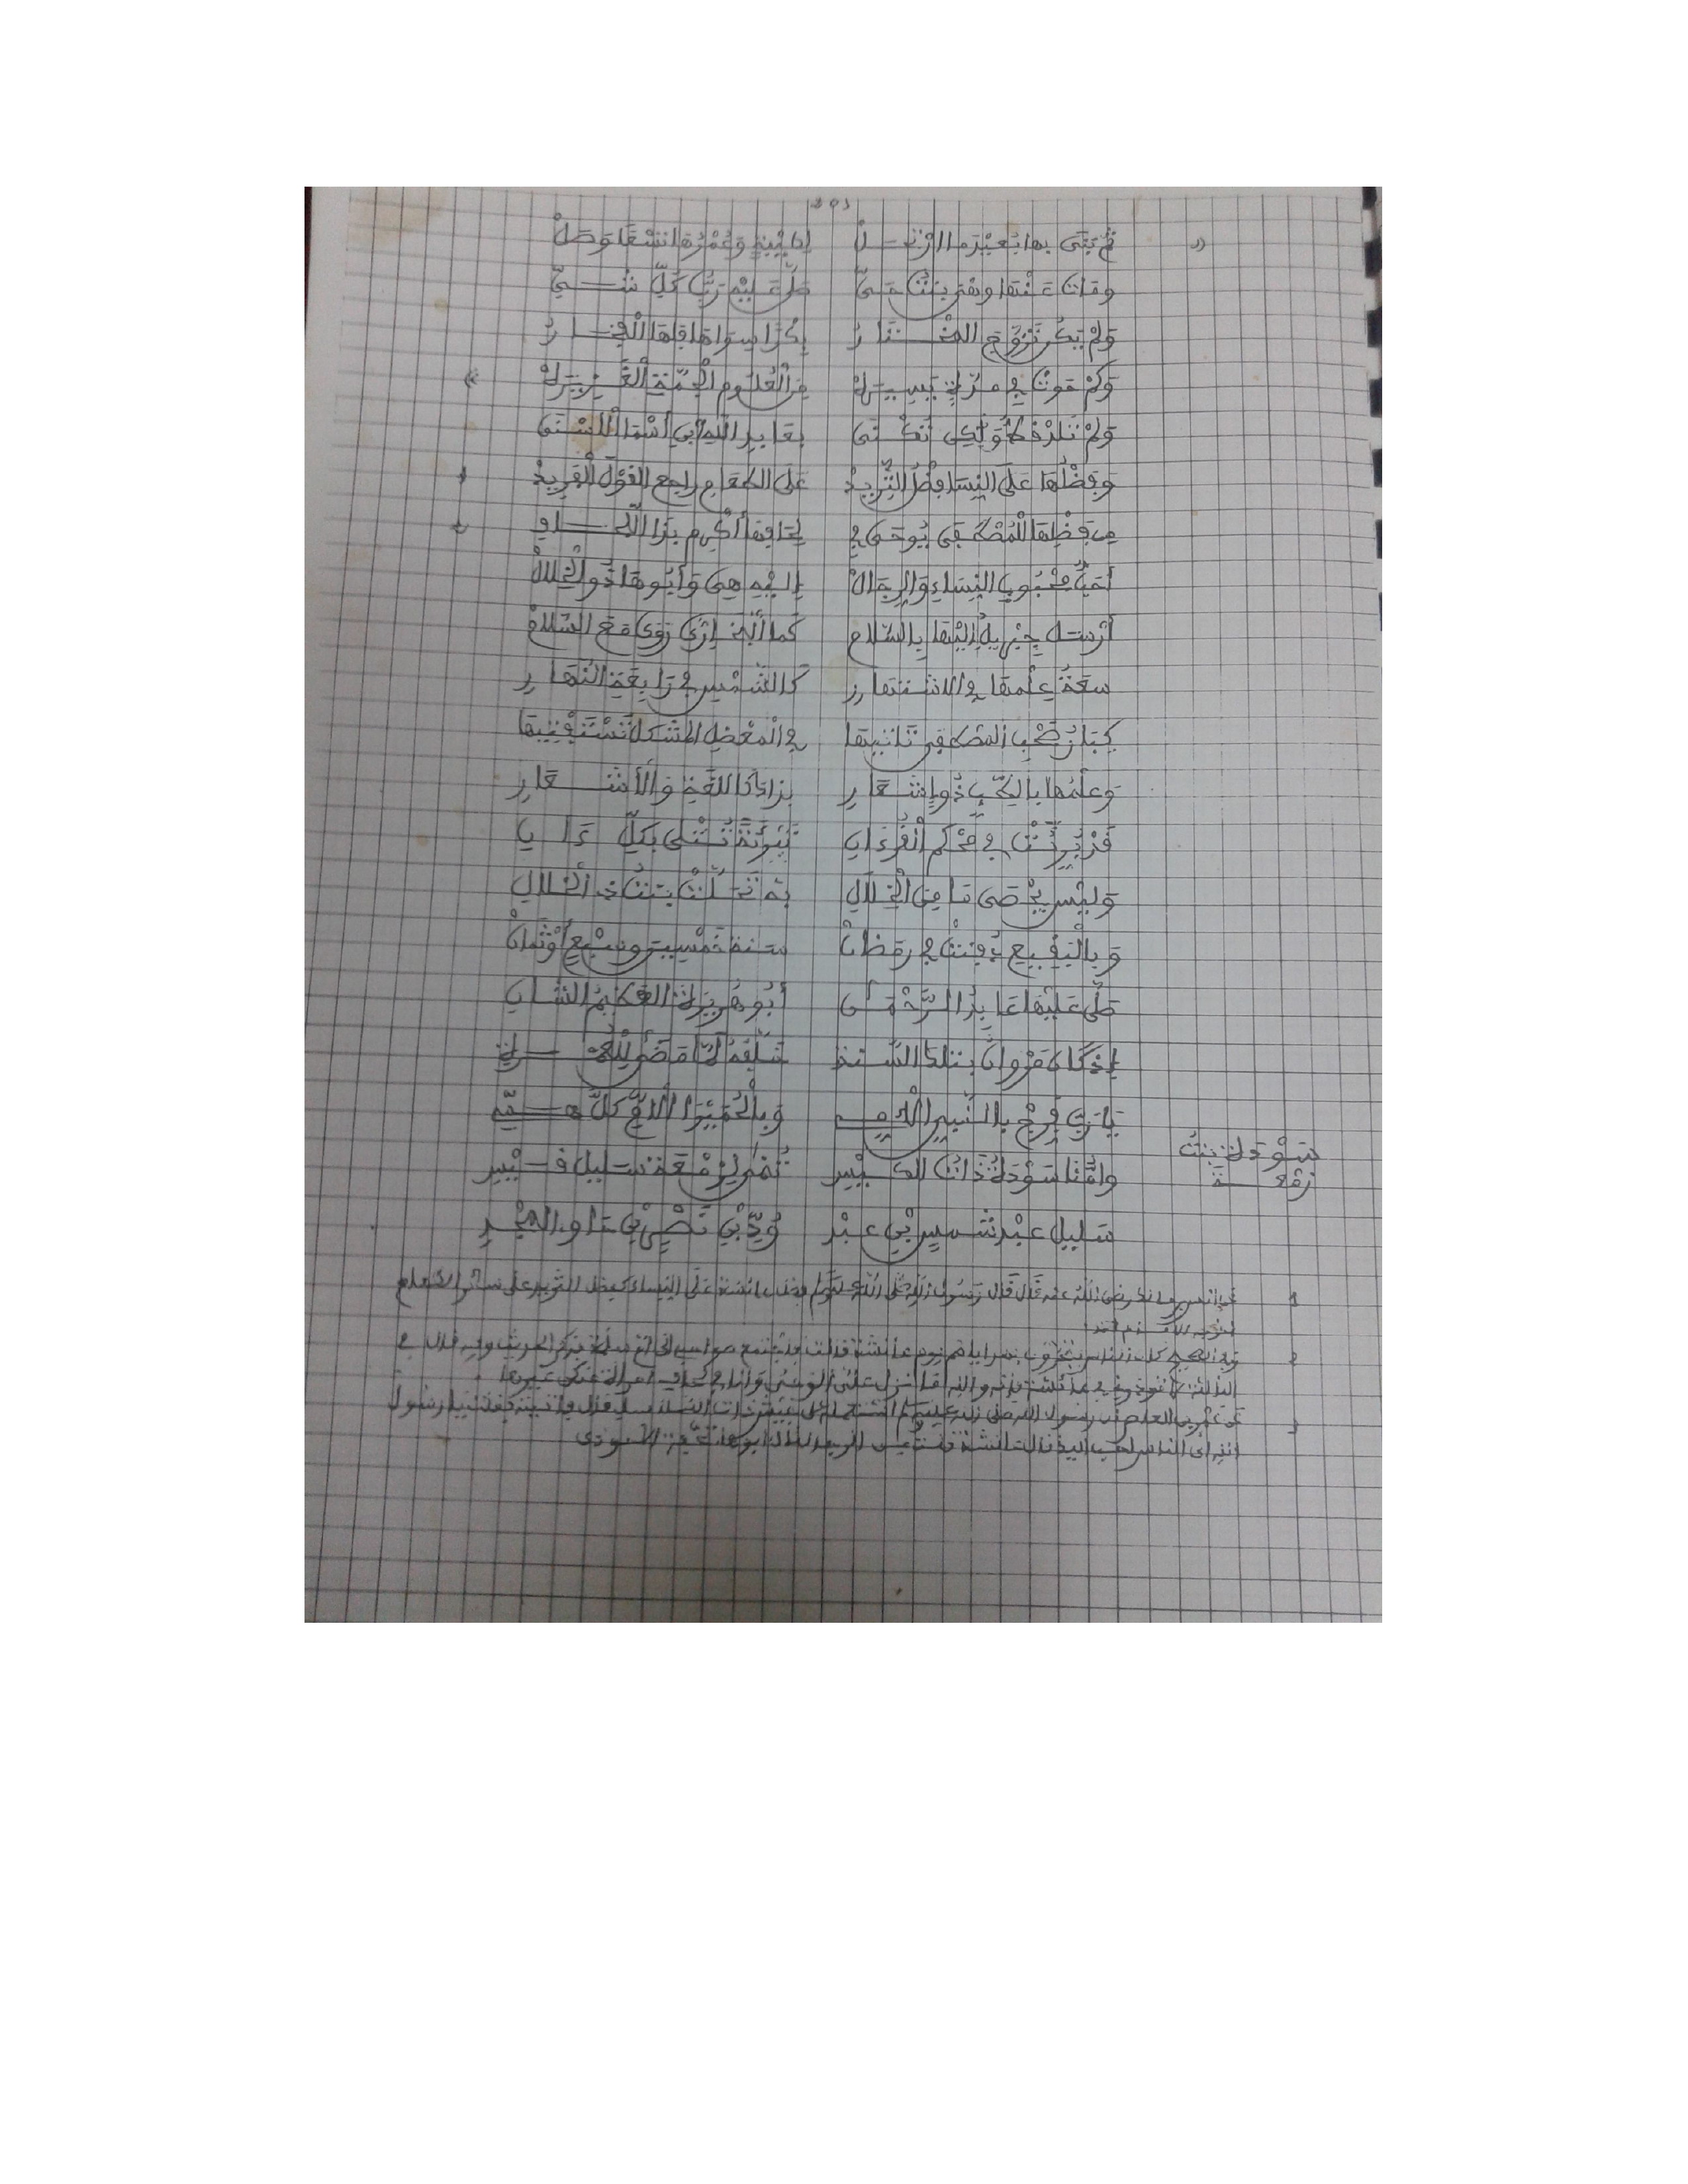 ثم بنى بها بعيد ما ارتحل إلى وعمرها تسعا وصل
ومات عنها وهي بنت حي صلى عليه رب كل شي
ولم يكن تزوج المختار بكرا سواها فلها الفخار
وكم حوت في مدة يسيره من العلوم الجمة الغزيره
ولم تلد قط ولكن تكنى بعابد الله أبي أسما الأسنى
وفضلها على النسا فضل الثريد على الطعام راجع القول الفريد
من فضلها للمصطفى يوحى في لحافها أكرم بذا اللحاف
أحب محبوب النساء والرجال إليه هي وأبوها ذو الخلال
أرسل جبريل إليها بالسلام كما البخاري روى مع السلام
سعة علمها في الاشتهار كالشمس في رابعة النهار
كبار صحب المصطفى تأتيها في المعضل المشكل تستفتيها
وعلمها بالطب ذو إشعار بذاك كاللغة والأشعار
قد برئت في محكم القرءان تبرئة تتلى بكل ءان
وليس يحصى ما من الخلال به تحلت بنت ذي الخلال
وبالبقيع دفنت في رمضان سنة خمسين وسبع أو ثمان
صلى عليها عابد الرحمان أبو هريرة العظيم الشان
إذ كان مروان بتلك السنة خلفه لما مضى للعمرة
يا رب فرج بالنبي الأمي وبالحميرا الأم كل هم
سودة بنت
زمعة
وأمنا سودة ذات الكيس تنمى لزمعة سليل قيس
سليل عبد شمس بن عبد ود بن نصر بن مالك المجد
1 عن أنس بن مالك رضي الله عنه قال قال رسول الله صلى الله عليه وسلم فضل عائشة على النساء كفضل الثريد على سائر الطعام
2 في الصحيح كان الناس يتحرون بهداياهم يوم عائشة قالت فاجتمع صواحبي إلى أم سلمة فذكر الحديث وفيه فقال في
الثالثة لا تؤذوني في عائشة فإنه والله ما نزل علي الوحي وأنا في لحاف امرأة منكن غيرها
3 عن عمرو بن العاص أن رسول الله صلى الله عليه وسلم استعمله على جيش ذات السلاسل قال فأتيته فقلت يا رسول
الله أي الناس أحب إليك قال عائشة قلت من الرجال قال أبوها